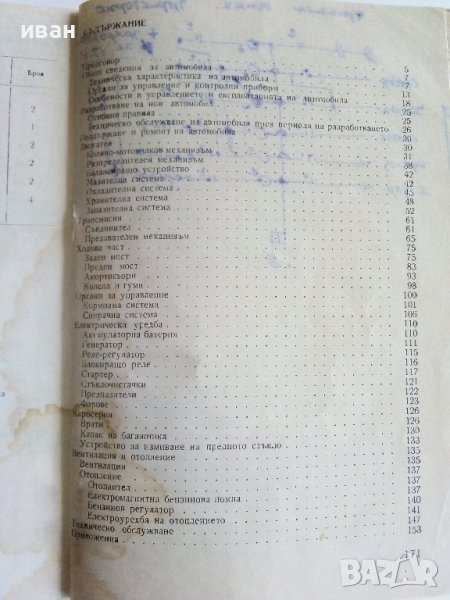 иван
СЪДЪРЖАНИЕ
Предговор 5
Общи сведения за автомобила 7
Техническа характеристика на автомобила 7
Органи за управление и контролни прибори 13
Особености в управлението и експлоатацията на автомобила 18
Разработване на нов автомобил 25
Основни правила 25
Техническо обслужване на автомобила през периода на разработването 26
Поддържане и ремонт на автомобила 30
Двигател 30
Коляно-мотовилков механизъм 31
Разпределителен механизъм 38
Балансиращо устройство 42
Мазителна система 42
Охладителна система 45
Хранителна система 48
Запалителна система 52
Трансмисия 61
Съединител 61
Предавателен механизъм 65
Ходова част 75
Заден мост 75
Преден мост 83
Амортисьори 93
Колела и гуми 98
Органи за управление 100
Кормилна система 101
Спирачна система 106
Електрическа уредба 110
Акумулаторна батерия 110
Генератор 111
Реле-регулатор 115
Блокиращо реле 116
Стартер 117
Стъклочистачки 121
Предпазители 122
Фарове 123
Каросерия 126
Врати 126
Капак на багажника 130
Устройство за измиване на предното стъкло 133
Вентилация и отопление 135
Вентилация 135
Отопление 137
Отоплител 137
Електромагнитна бензинова помпа 137
Бензинов регулатор 140
Електроуредба на отоплението 141
Техническо обслужване 147
Приложения 153
171
Броя
2
2
2
2
4
BAZAR
bg